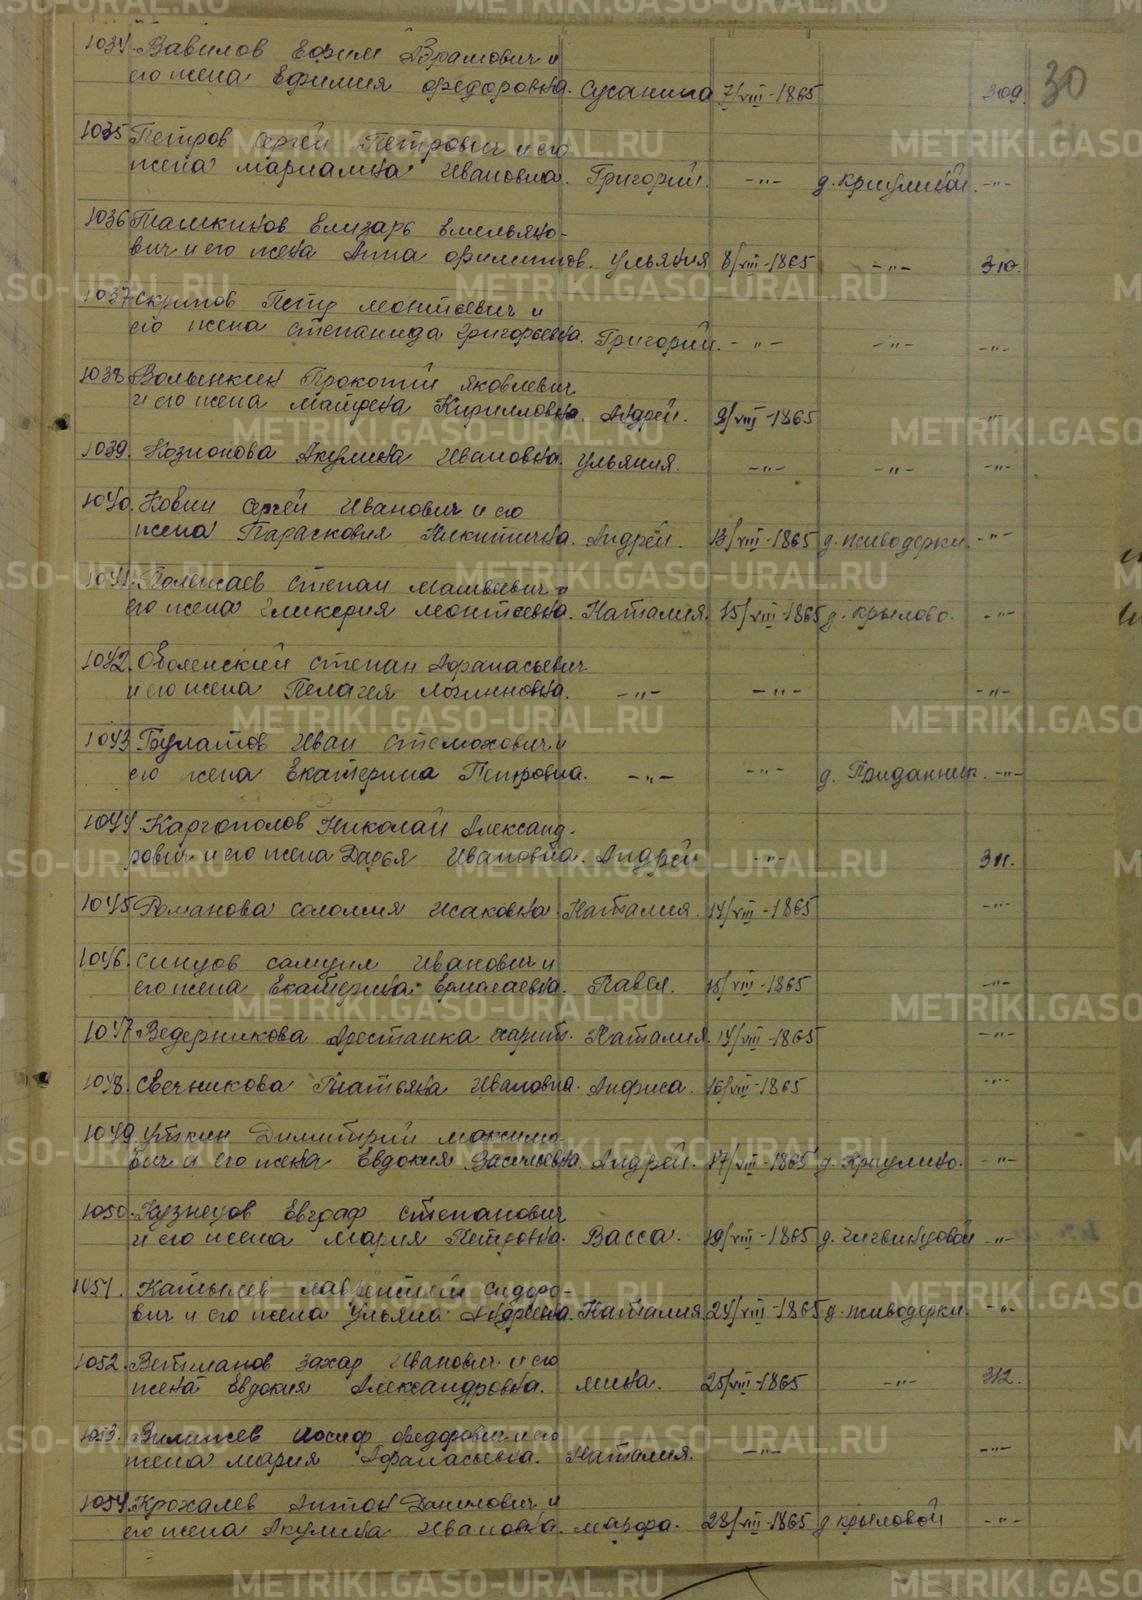 30
1034. Вавилов Ефим Абрамович и
его жена Ефимия Федоровна. Сусанина 7/VIII-1865 309.
1035 Петров Сергей Петрович и его
жена Мариамна Ивановна. Григорий. -"- д. Криулиной. -"-
1036 Ташкинов Елизарь Емельяно-
вич и его жена Анна Филиппов. Ульяния 8/VIII-1865 -"- 310.
1037 Скрипов Петр Монтеевич и
его жена Степанида Григорьевна. Григорий. -"- -"- -"-
1038 Волынкин Прокопий Яковлевич
и его жена Матрена Кирилловна. Андрей. 9/VIII-1865 -"-
1039. Козионова Акулина Ивановна. Ульяния. -"- -"- -"-
1040. Ковин Сергей Иванович и его
жена Парасковия Никитична. Андрей. 13/VIII-1865 д. Живодерки. -"-
1041. Полежаев Степан Матвеевич и
его жена Гликерия Монтеевна. Наталия. 15/VIII-1865 д. Крылово. -"-
1042. Оболенский Степан Афанасьевич
и его жена Пелагея Логинновна. -"- -"- -"-
1043 Булатов Иван
его жена Екатерина Петровна. -"- -"- д. Приданник. -"-
1044 Каргополов Николай Александ-
рович и его жена Дарья Ивановна. Андрей -"- 311.
1045 Романова Соломия Исаковна. Наталия. 14/VIII-1865 -"-
1046. Синцов Самуил Иванович и
его жена Екатерина Ермолаевна. Павел. 15/VIII-1865 -"-
1047. Ведерникова Харит. Наталия. 14/VIII-1865 -"-
1048. Свечникова Татьяна Ивановна. Анфиса. 16/VIII-1865 -"-
1049. Уткин Димитрий Максимо-
вич и его жена Евдокия Васильевна. Андрей. 17/VIII-1865 д. Криулино. -"-
1050. Кузнецов Евграф Степанович
и его жена Мария Петровна. Васса. 19/VIII-1865 д. Чигвинцовой -"-
1051. Катырев Лаврентий Сидоро-
вич и его жена Ульяна Андреевна. Наталия. 24/VIII-1865 д. Живодерки. -"-
1052. Захар Иванович и его
жена Евдокия Александровна. Мина. 25/VIII-1865 -"- 312.
1053. Иосиф Федорович и его
жена Мария Афанасьевна. Наталия. -"- -"-
1054. Крохалев Антон Данилович и
его жена Акулина Ивановна. Марфа. 28/VIII-1865 д. Крыловой -"-
METRIKI.GASO-URAL.RU